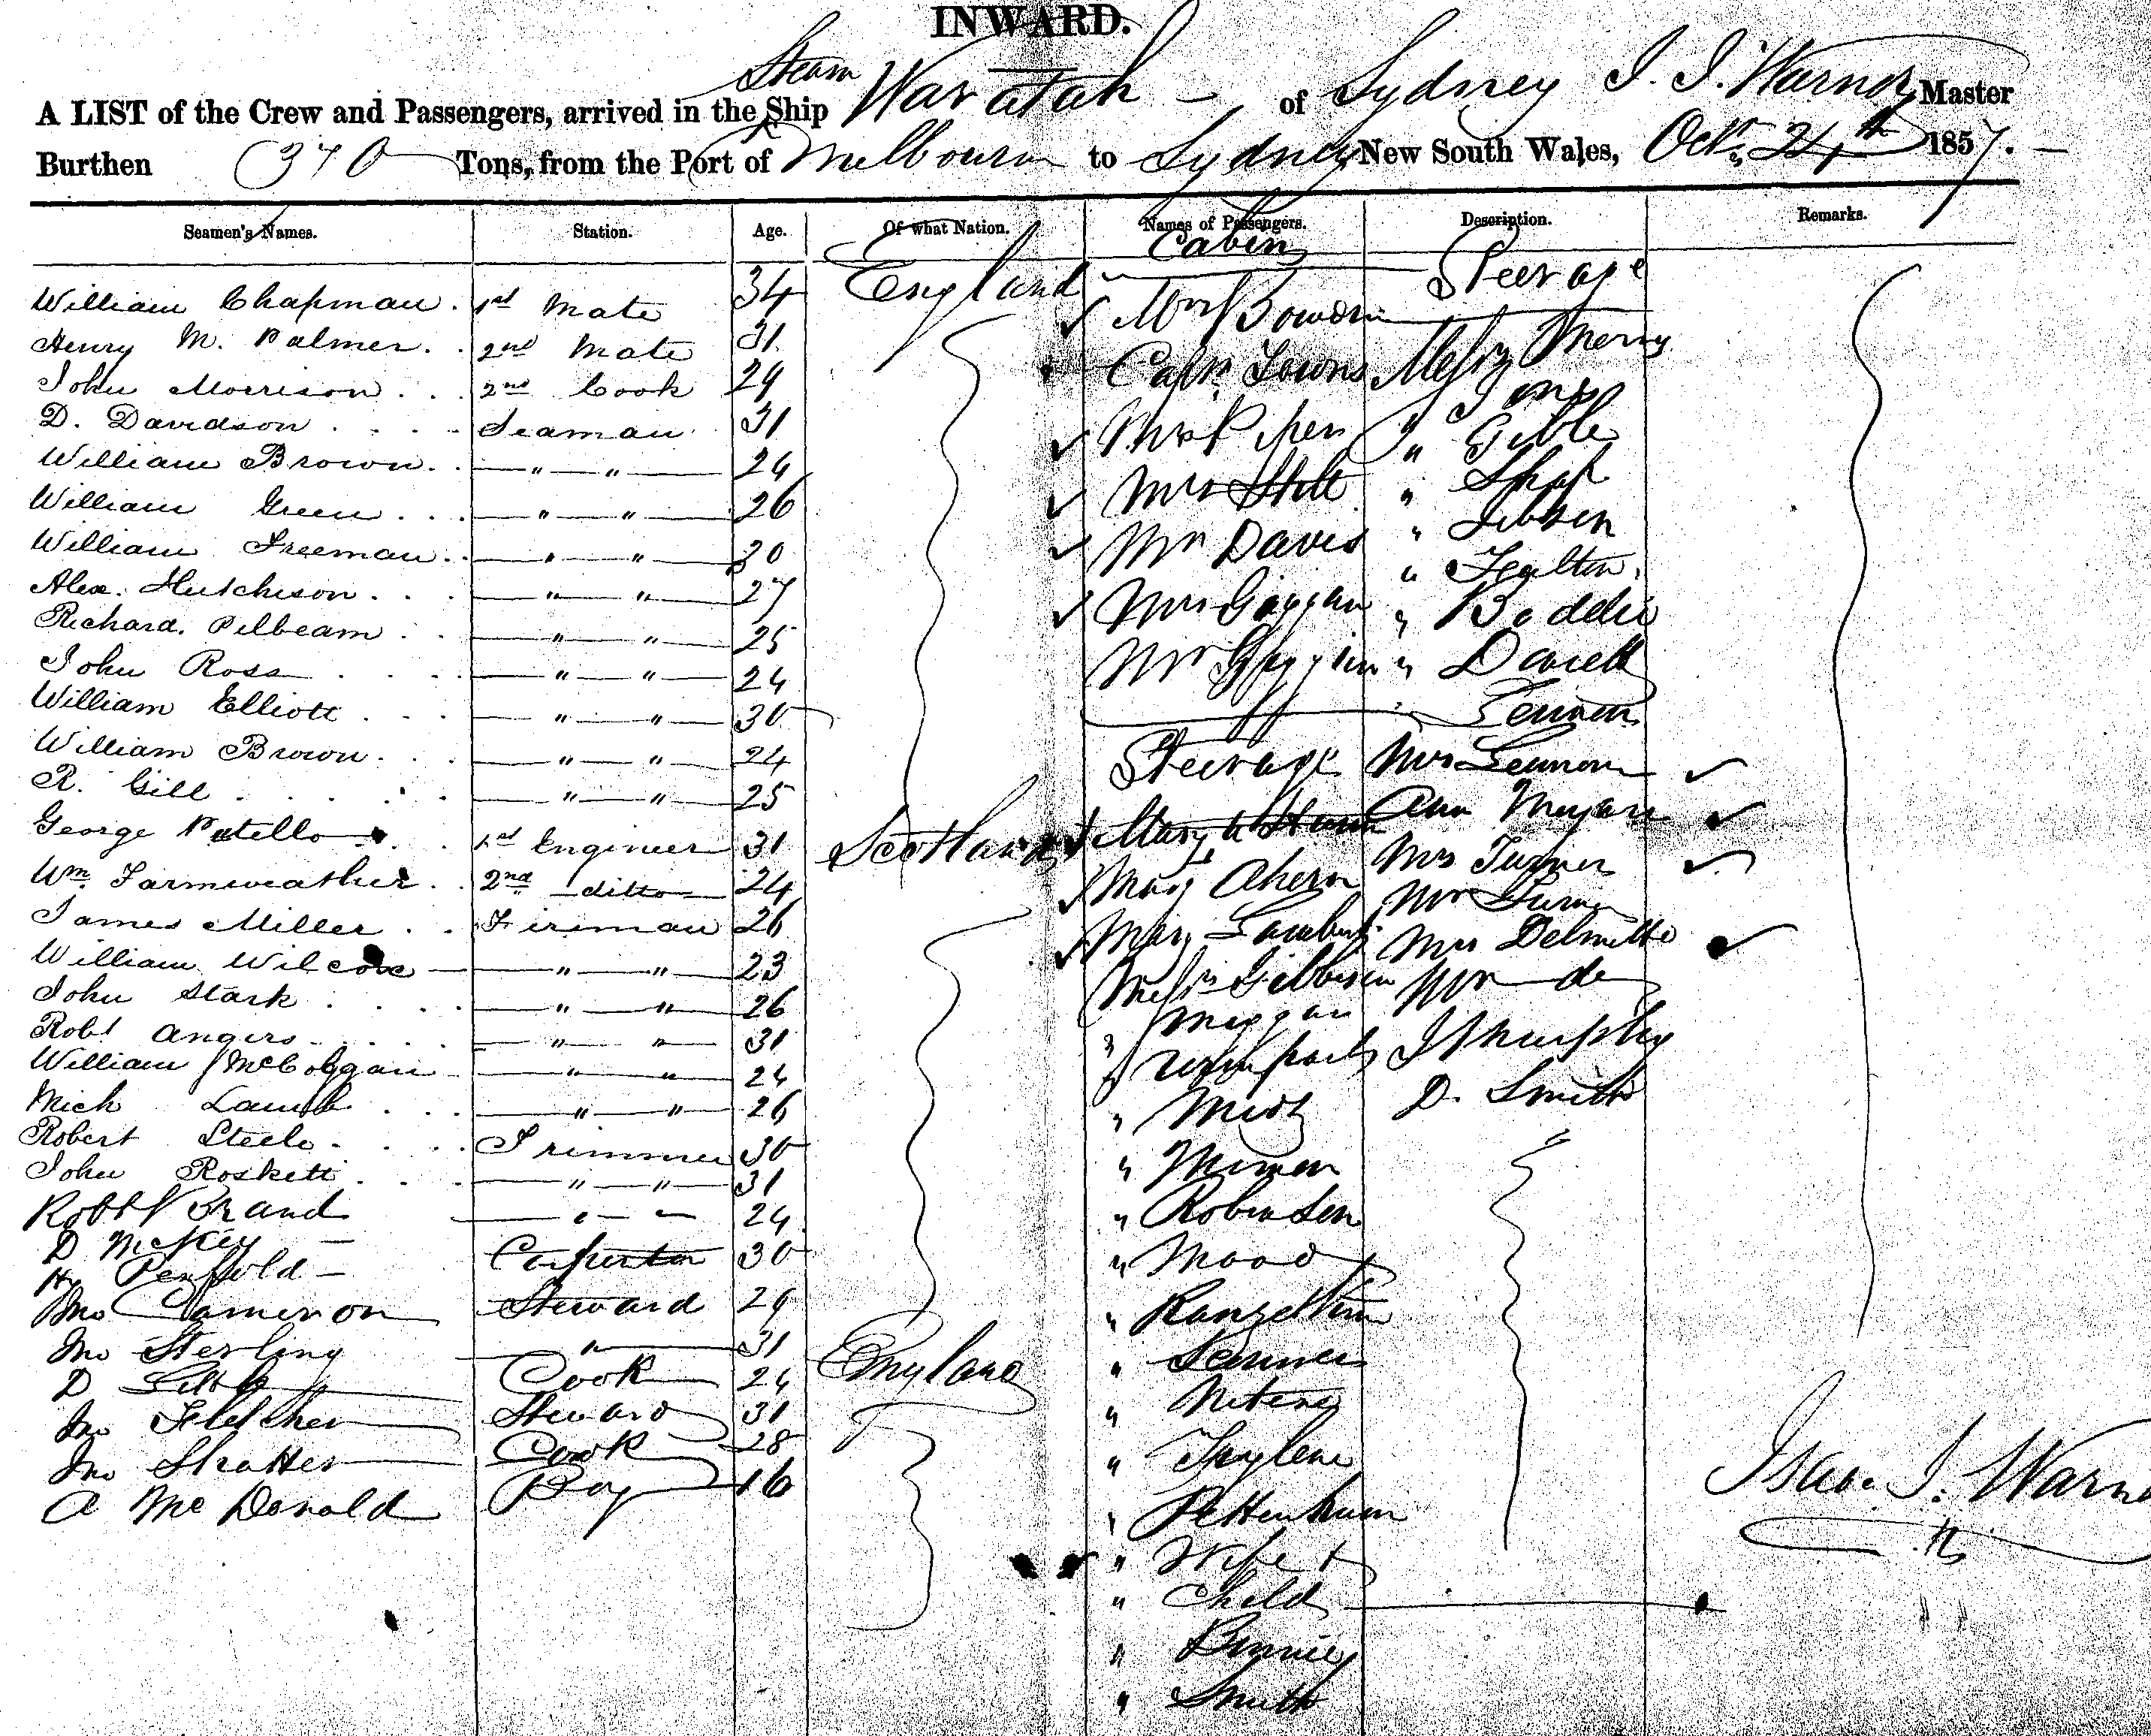 INWARD.
A LIST of the Crew and Passengers, arrived in the Steam Ship Waratah - of Sydney I. I. Warner Master
Burthen 370 Tons, from the Port of Melbourn to Sydney New South Wales, Octr. 24th 1857.
Seamen's Names. Station. Age. Of what Nation. Names of Passengers. Description. Remarks.
William Chapman 1st Mate 34 England
Henry M. Palmer 2nd Mate 31
John Morrison 2nd Cook 29
D. Davidson Seaman 31
William Brown " " 24
William Green " " 26
William Freeman " " 30
Alex. Hutchison " " 27
Richard Pilbeam " " 25
John Ross " " 24
William Elliott " " 30
William Brown " " 24
R. Gill " " 25
George Patello 1st Engineer 31 Scotland
Wm. Farmweather 2nd ditto 24
James Miller Fireman 26
William Wilcox " " 23
John Stark " " 26
Robt Angers " " 31
William McColggan " " 24
Mich Lamb " " 26
Robert Steele Trimmer 30
John Roskett " " 31
Robt Brand " " 24
D McKey Carpenter 30
Hy Penfold Steward 29
Jno Cameron " 31
Jno Sterling Cook 24 England
D Little Steward 31
Jno Fletcher Cook 28
Jno Shatter Boy 16
A McDonald
Cabin
Mrs Bowden
Captn Towns
Mrs Pipen
Mrs Stilt
Mrs Davis
Mrs Goggan
Mr Goggan
Steerage
Mary Ahern
Mary Lambert
Messrs Gibbson
" Meggan
"
"
"
" Robinson
" Mood
"
"
"
"
" Pettenham
" Wife &
" Child
" Binnie
" Smith
Steerage
Messrs Merry
" Jones
" Gibb
"
" Gibson
" Fealton
" Boddie
"
" Lennon
Mrs Lennon
Ann
Mrs Turner
Mr Turner
Mrs Delmitte
Mr do
J Murphy
D. Smith
Isaac I. Warner